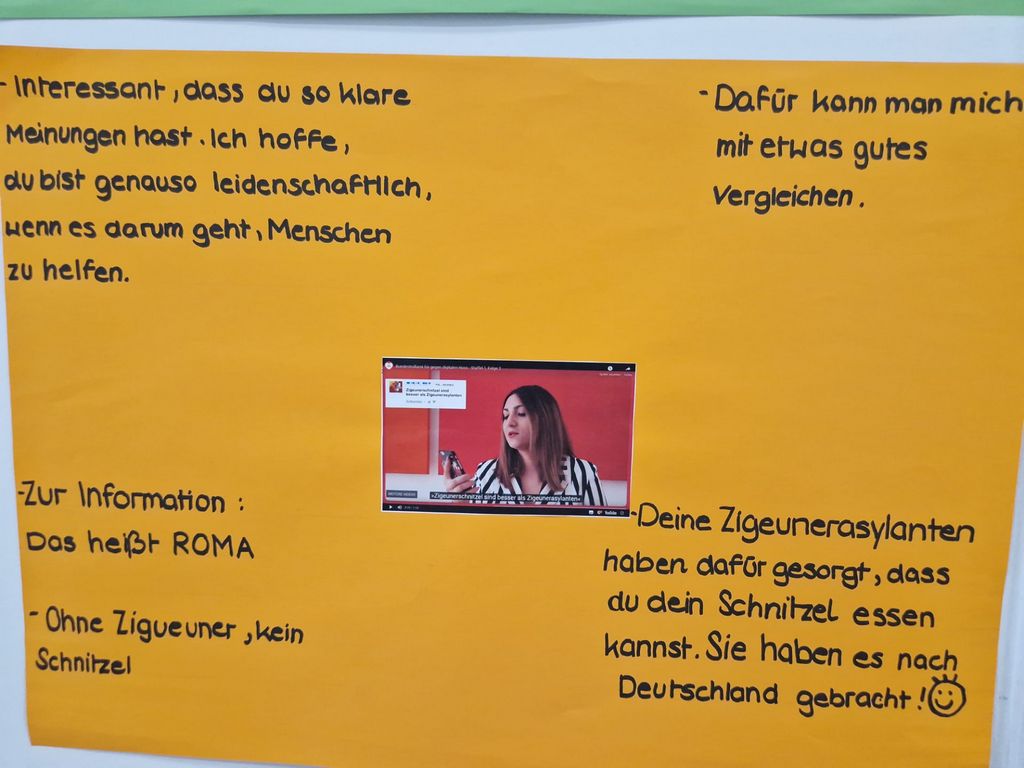 - Interessant, dass du so klare
Meinungen hast. Ich hoffe,
du bist genauso leidenschaftlich,
wenn es darum geht, Menschen
zu helfen.
- Dafür kann man mich
mit etwas gutes
vergleichen.
Zigeunerschnitzel sind
besser als Zigeunerasylanten
»Zigeunerschnitzel sind besser als Zigeunerasylanten«
- Zur Information :
Das heißt ROMA
- Ohne Zigueuner, kein
Schnitzel
- Deine Zigeunerasylanten
haben dafür gesorgt, dass
du dein Schnitzel essen
kannst. Sie haben es nach
Deutschland gebracht!